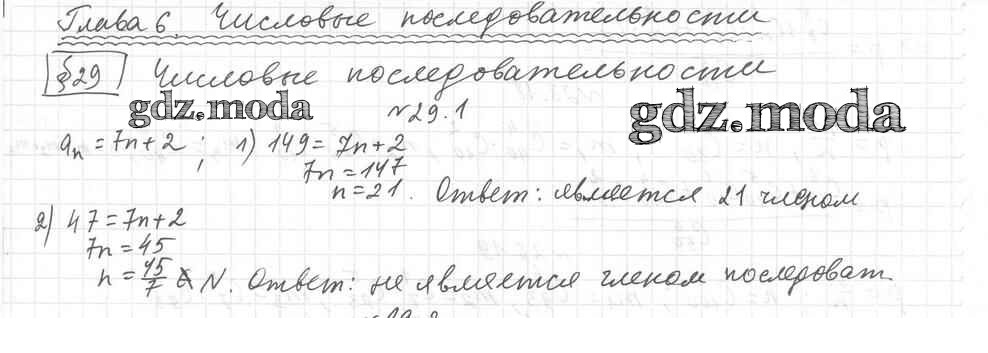 Глава 6. Числовые последовательности
§29 Числовые последовательности
gdz.moda
gdz.moda
№29.1
aₙ = 7n + 2 ; 1) 149 = 7n + 2
7n = 147
n = 21. Ответ: является 21 членом
2) 47 = 7n + 2
7n = 45
n = 45/7 ∉ N. Ответ: не является членом последоват.